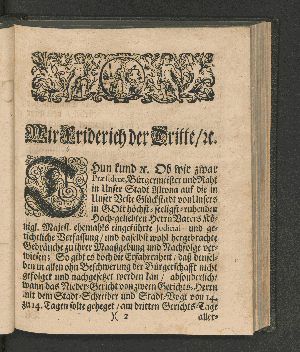 Wir Friderich der Dritte/ ꝛc.
Thun kund ꝛc. Ob wir zwar
Præsident, Bürgermeister und Raht
in Unser Stadt Altona auf die in
in Unser Veste Glückstadt von Unsers
in GOtt höchst-seeligst-ruhenden
Hoch-geliebten Herrn Vaters Kö-
nigl. Majest. ehemahls eingeführte Judicial- und ge-
richtliche Verfassung/ und daselbst wohl hergebrachte
Gebräuche zu ihrer Maaßgebung und Nachfolge ver-
wiesen; So gibt es doch die Erfahrenheit/ daß densel-
ben in allen ohn Beschwerung der Bürgerschafft nicht
gefolget und nachgesetzet werden kan/ absonderlich
wann das Nieder-Gericht von zween Gerichts-Herrn
mit dem Stadt-Schreiber und Stadt-Vogt von 14.
zu 14. Tagen solte geheget/ am dritten Gerichts-Tage
X 2
aller-